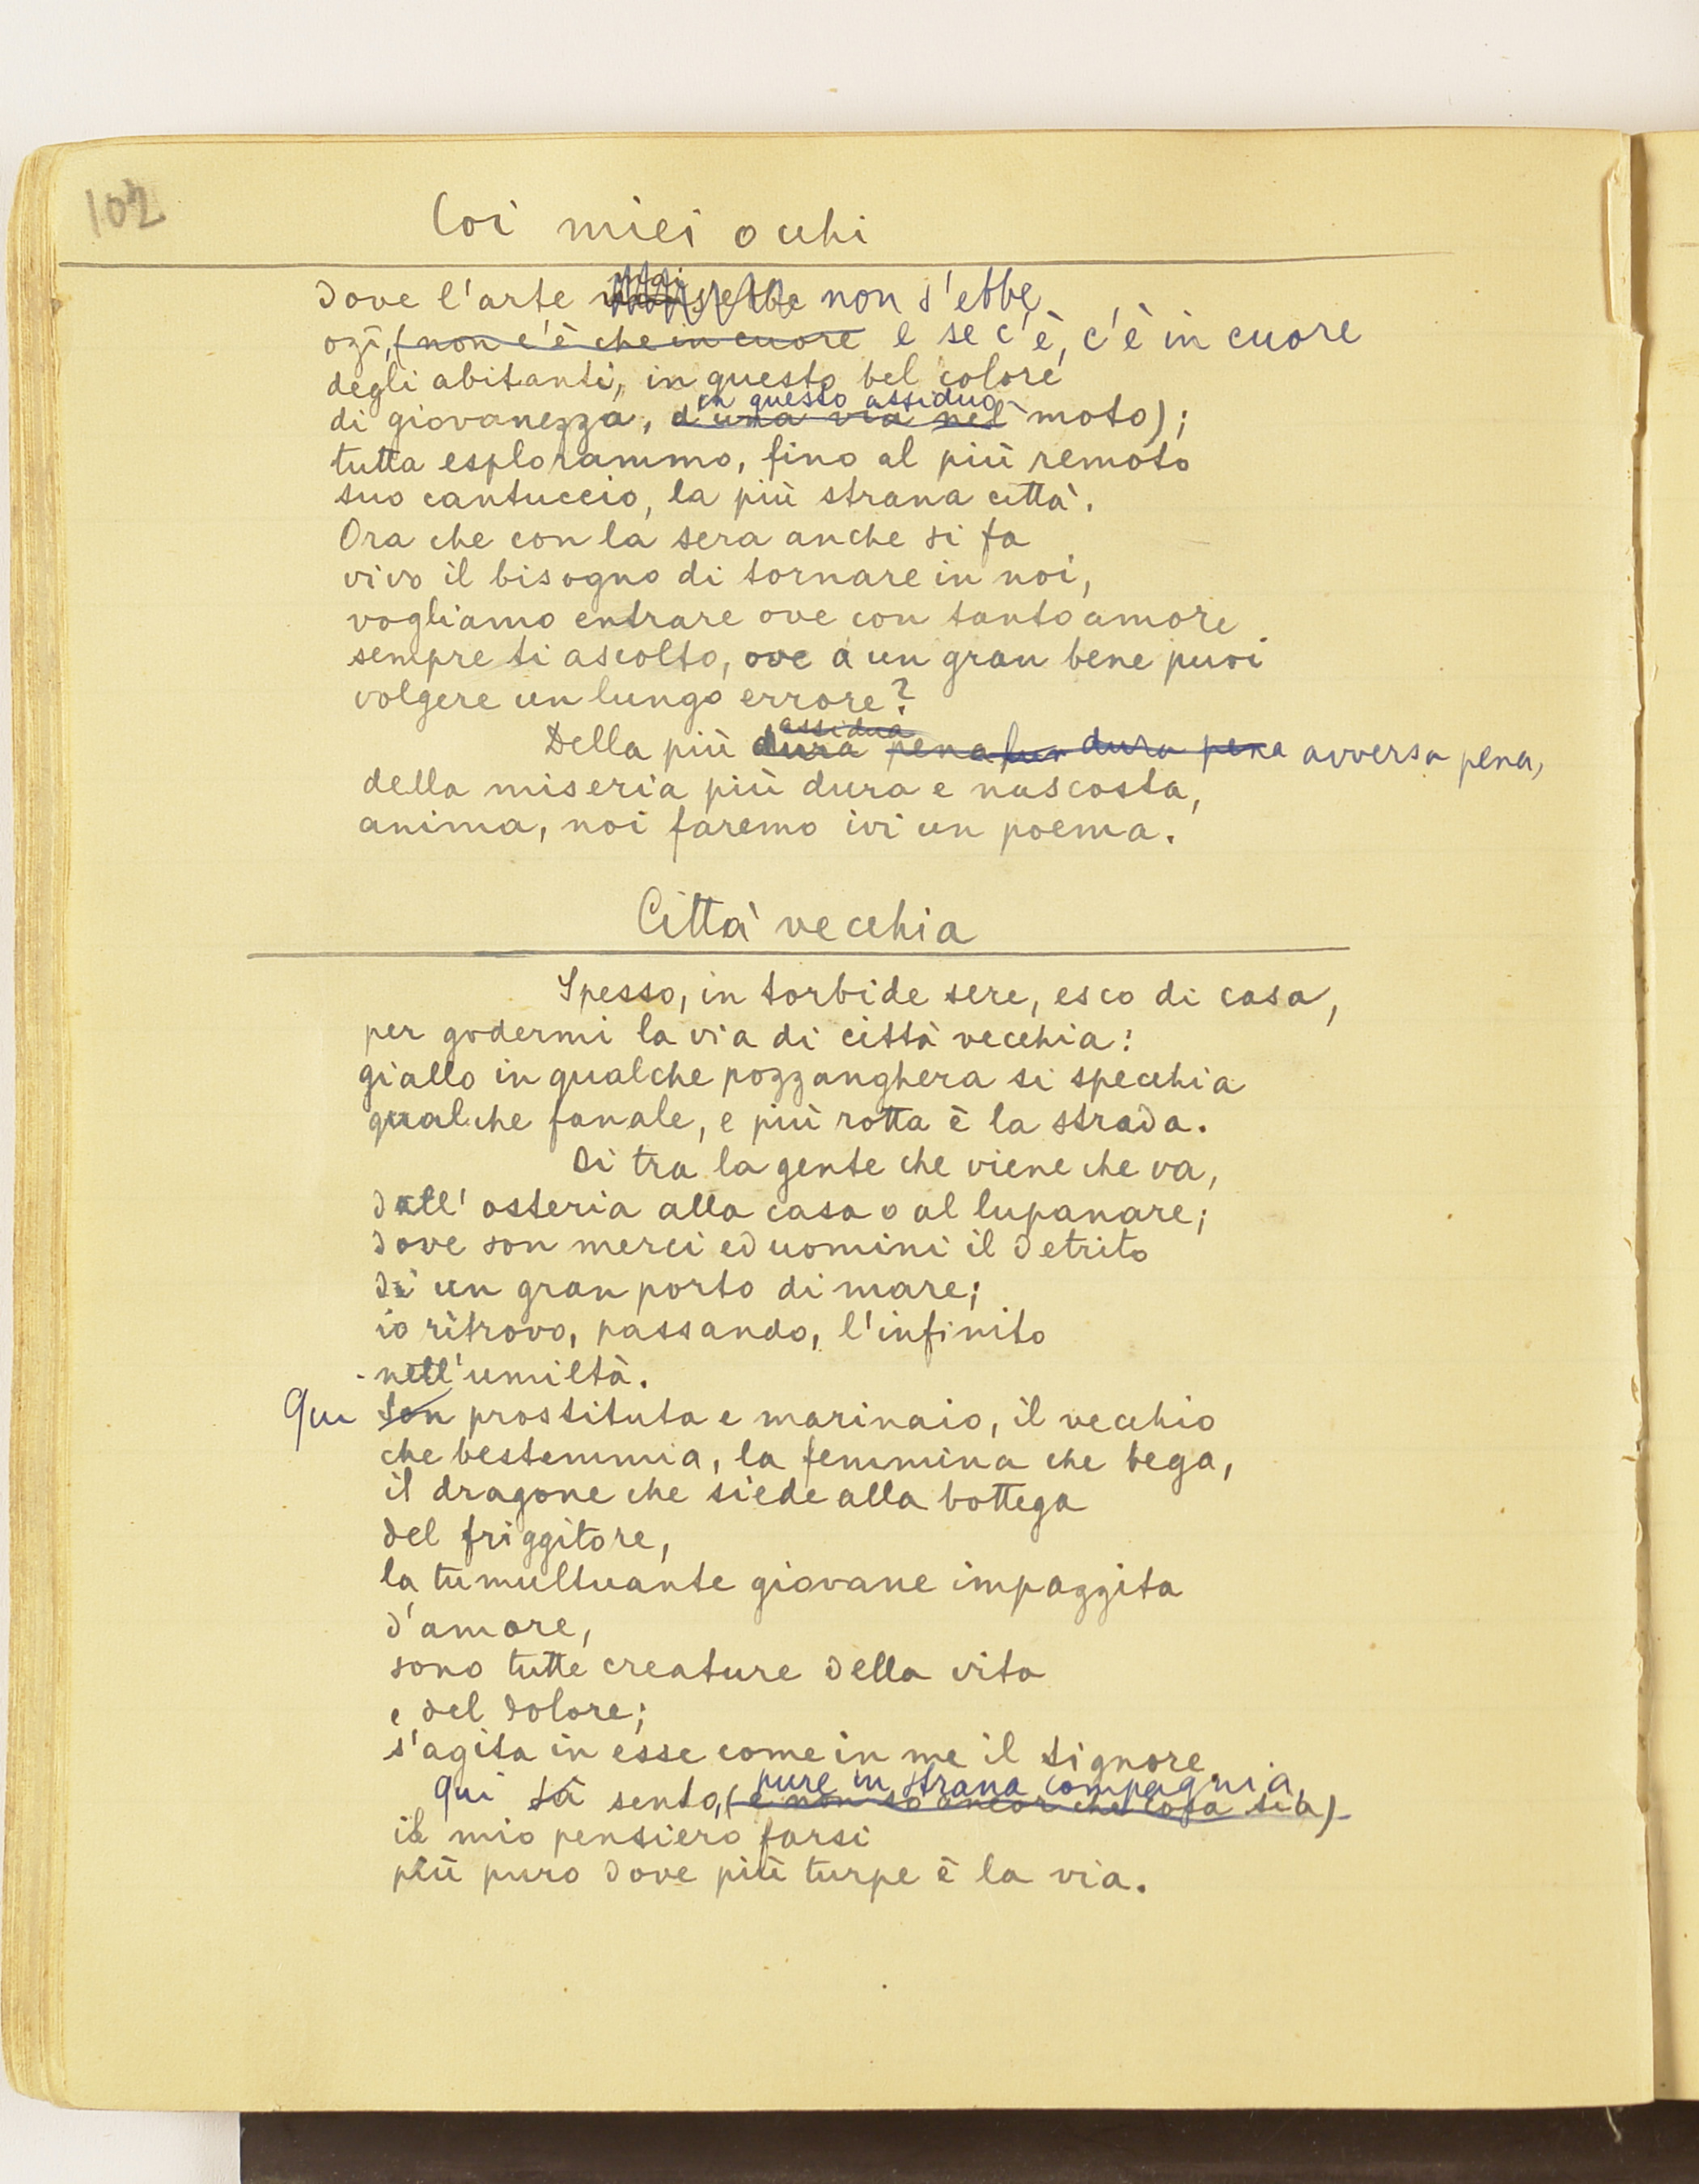 102
Coi miei occhi
dove l'arte mai s'ebbe non s'ebbe
ozi, (non c'è che in cuore e se c'è, c'è in cuore
degli abitanti, in questo bel colore
in questo assiduo
di giovanezza, d'una via nel moto);
tutta esplorammo, fino al più remoto
suo cantuccio, la più strana città.
Ora che con la sera anche si fa
vivo il bisogno di tornare in noi,
vogliamo entrare ove con tanto amore
sempre ti ascolto, ove a un gran bene puoi
volgere un lungo errore?
assidua
Della più dura pena dura pena avversa pena,
della miseria più dura e nascosta,
anima, noi faremo ivi un poema.
Città vecchia
Spesso, in torbide sere, esco di casa,
per godermi la via di città vecchia:
giallo in qualche pozzanghera si specchia
qualche fanale, e più rotta è la strada.
Di tra la gente che viene che va,
dall'osteria alla casa o al lupanare;
dove son merci ed uomini il detrito
di un gran porto di mare;
io ritrovo, passando, l'infinito
nell'umiltà.
Qui son prostituta e marinaio, il vecchio
che bestemmia, la femmina che bega,
il dragone che siede alla bottega
del friggitore,
la tumultuante giovane impazzita
d'amore,
sono tutte creature della vita
e del dolore;
s'agita in esse come in me il signore.
pure in strana compagnia,
Qui sento, (e non so ancor che cosa sia)
il mio pensiero farsi
più puro dove più turpe è la via.